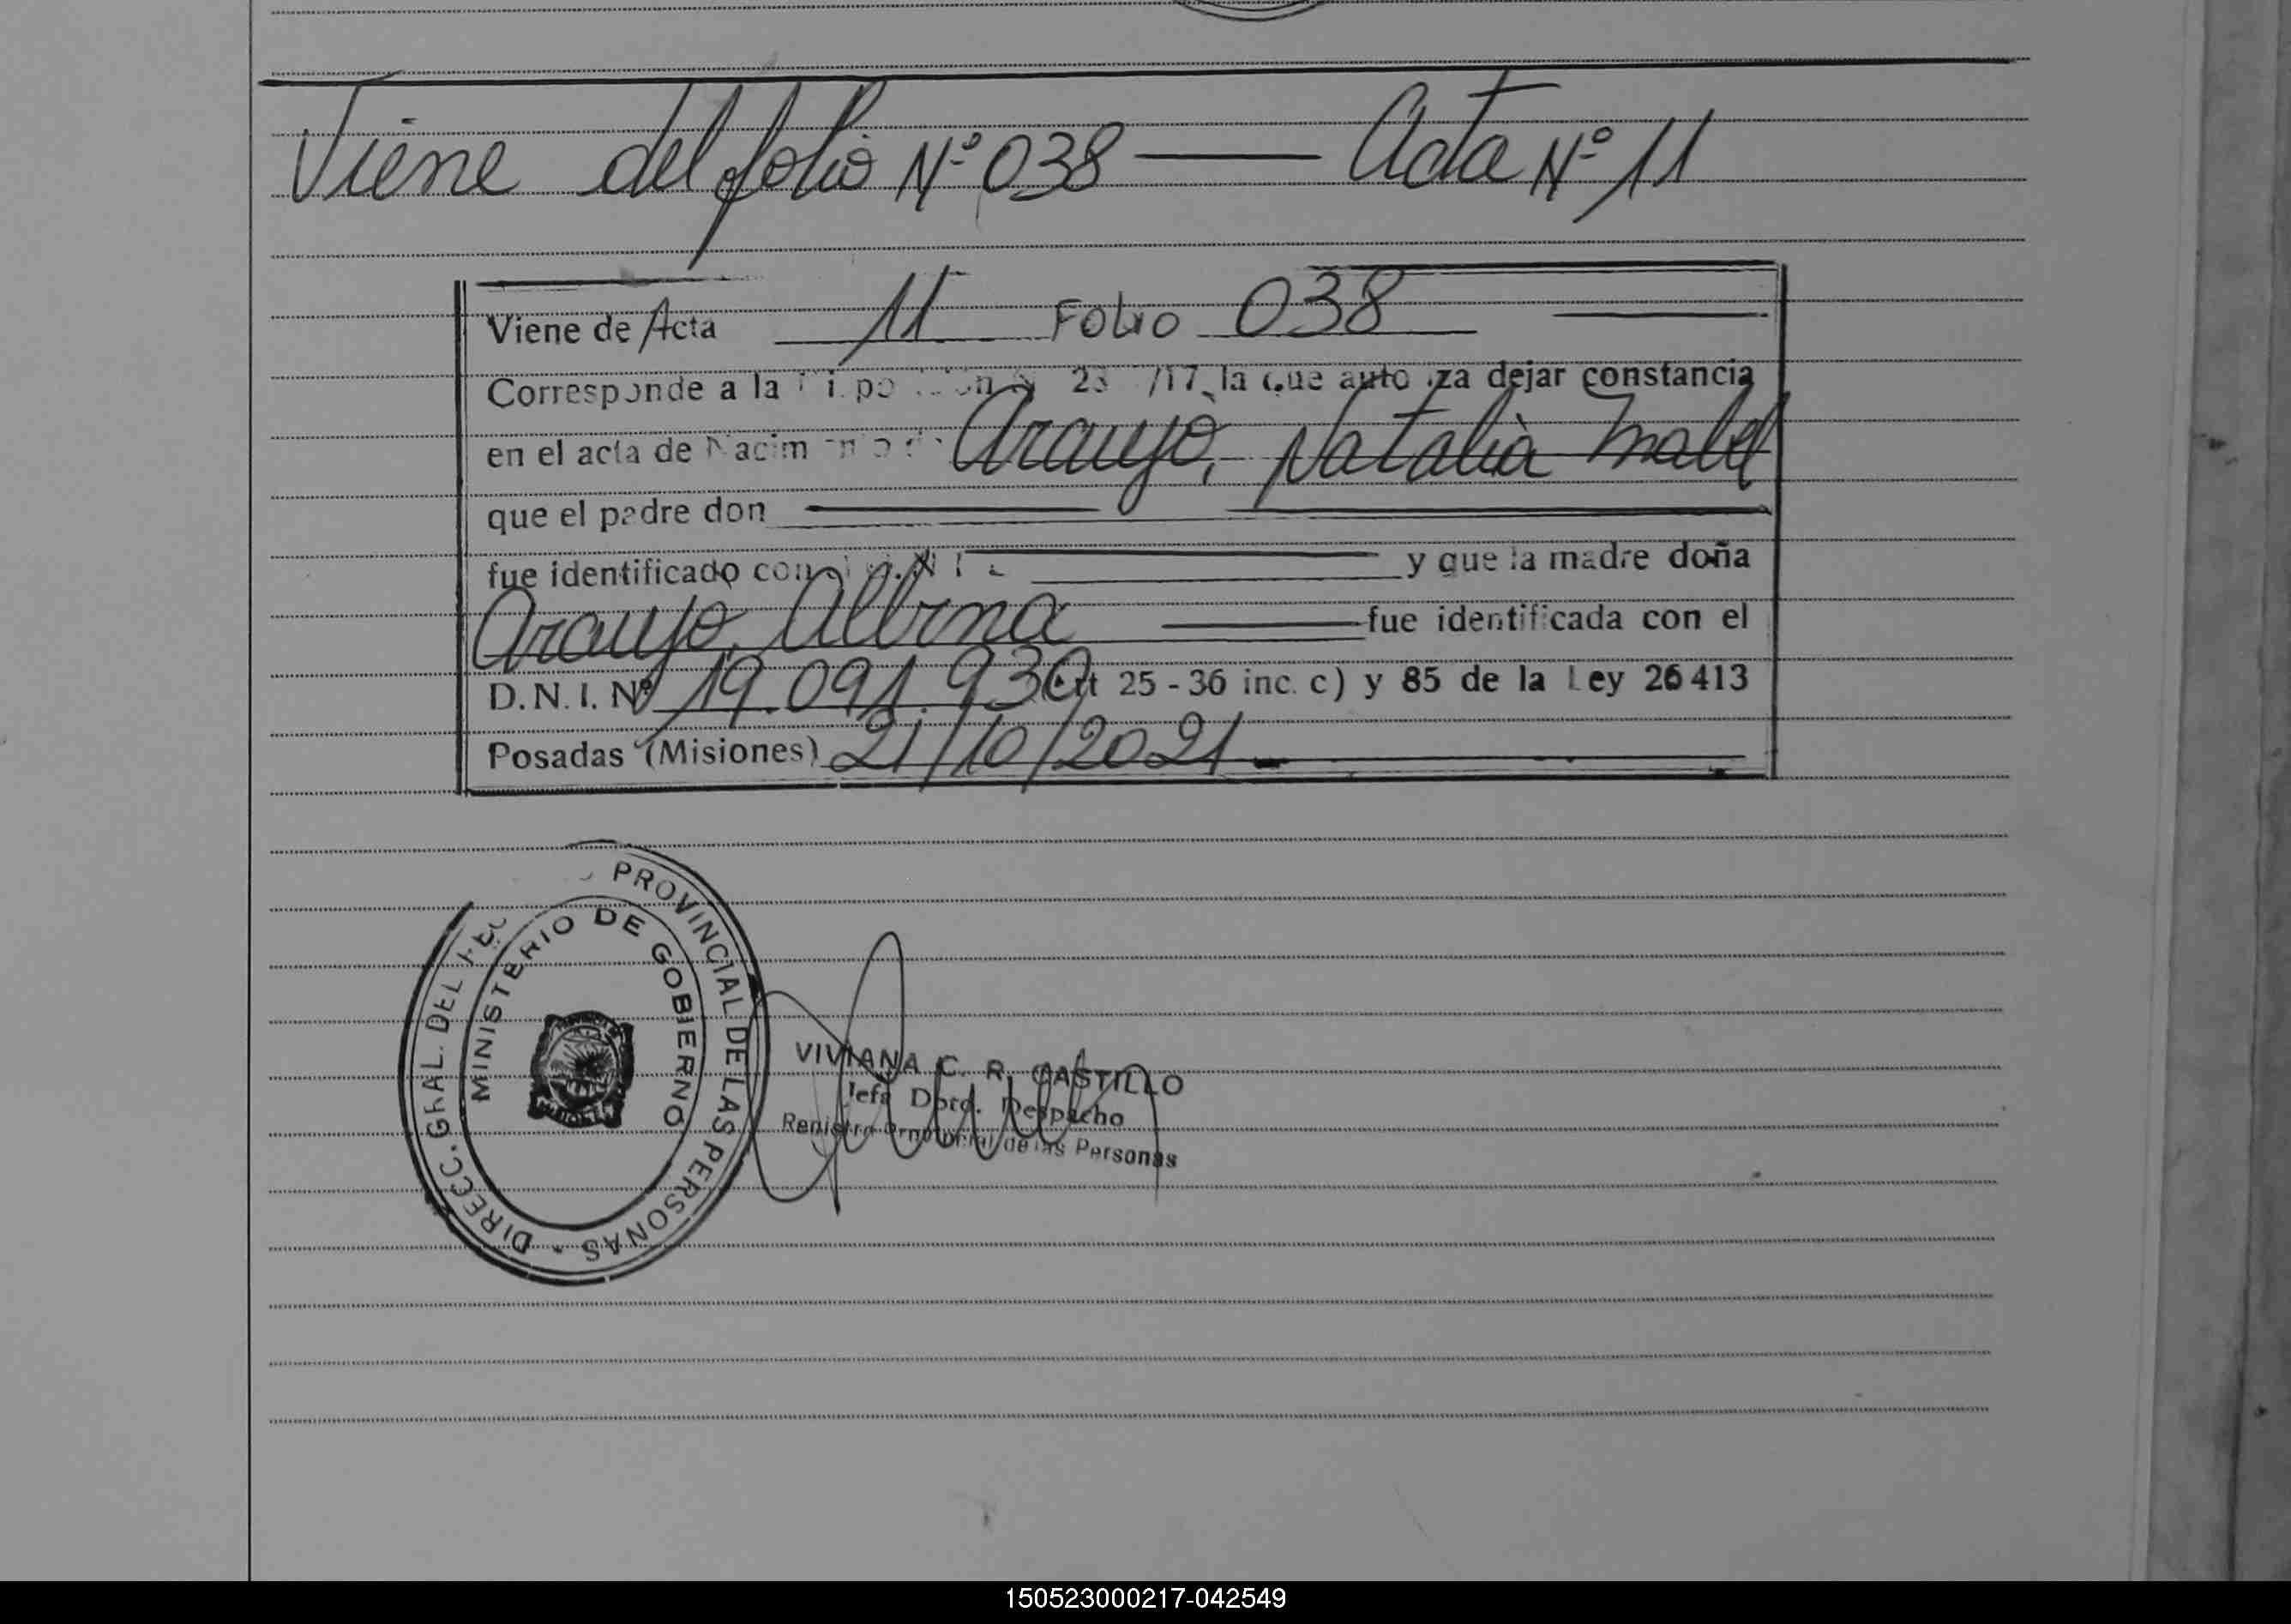 Viene del folio Nº 038 — Acta Nº 11
Viene de Acta 11 Folio 038
Corresponde a la /17, la que autoriza dejar constancia
en el acta de Nacimiento de Araujo, Natalia Mabel
que el padre don
fue identificado con y que la madre doña
Araujo, Albina fue identificada con el
D.N.I. Nº 19.091.930 Art 25 - 36 inc. c) y 85 de la Ley 26413
Posadas (Misiones) 21/10/2021.-
DIRECC. GRAL. DEL PROVINCIAL DE LAS PERSONAS
MINISTERIO DE GOBIERNO
VIVIANA C. R. CASTILLO
Jefa Dpto. Despacho
Registro Provincial de las Personas
150523000217-042549